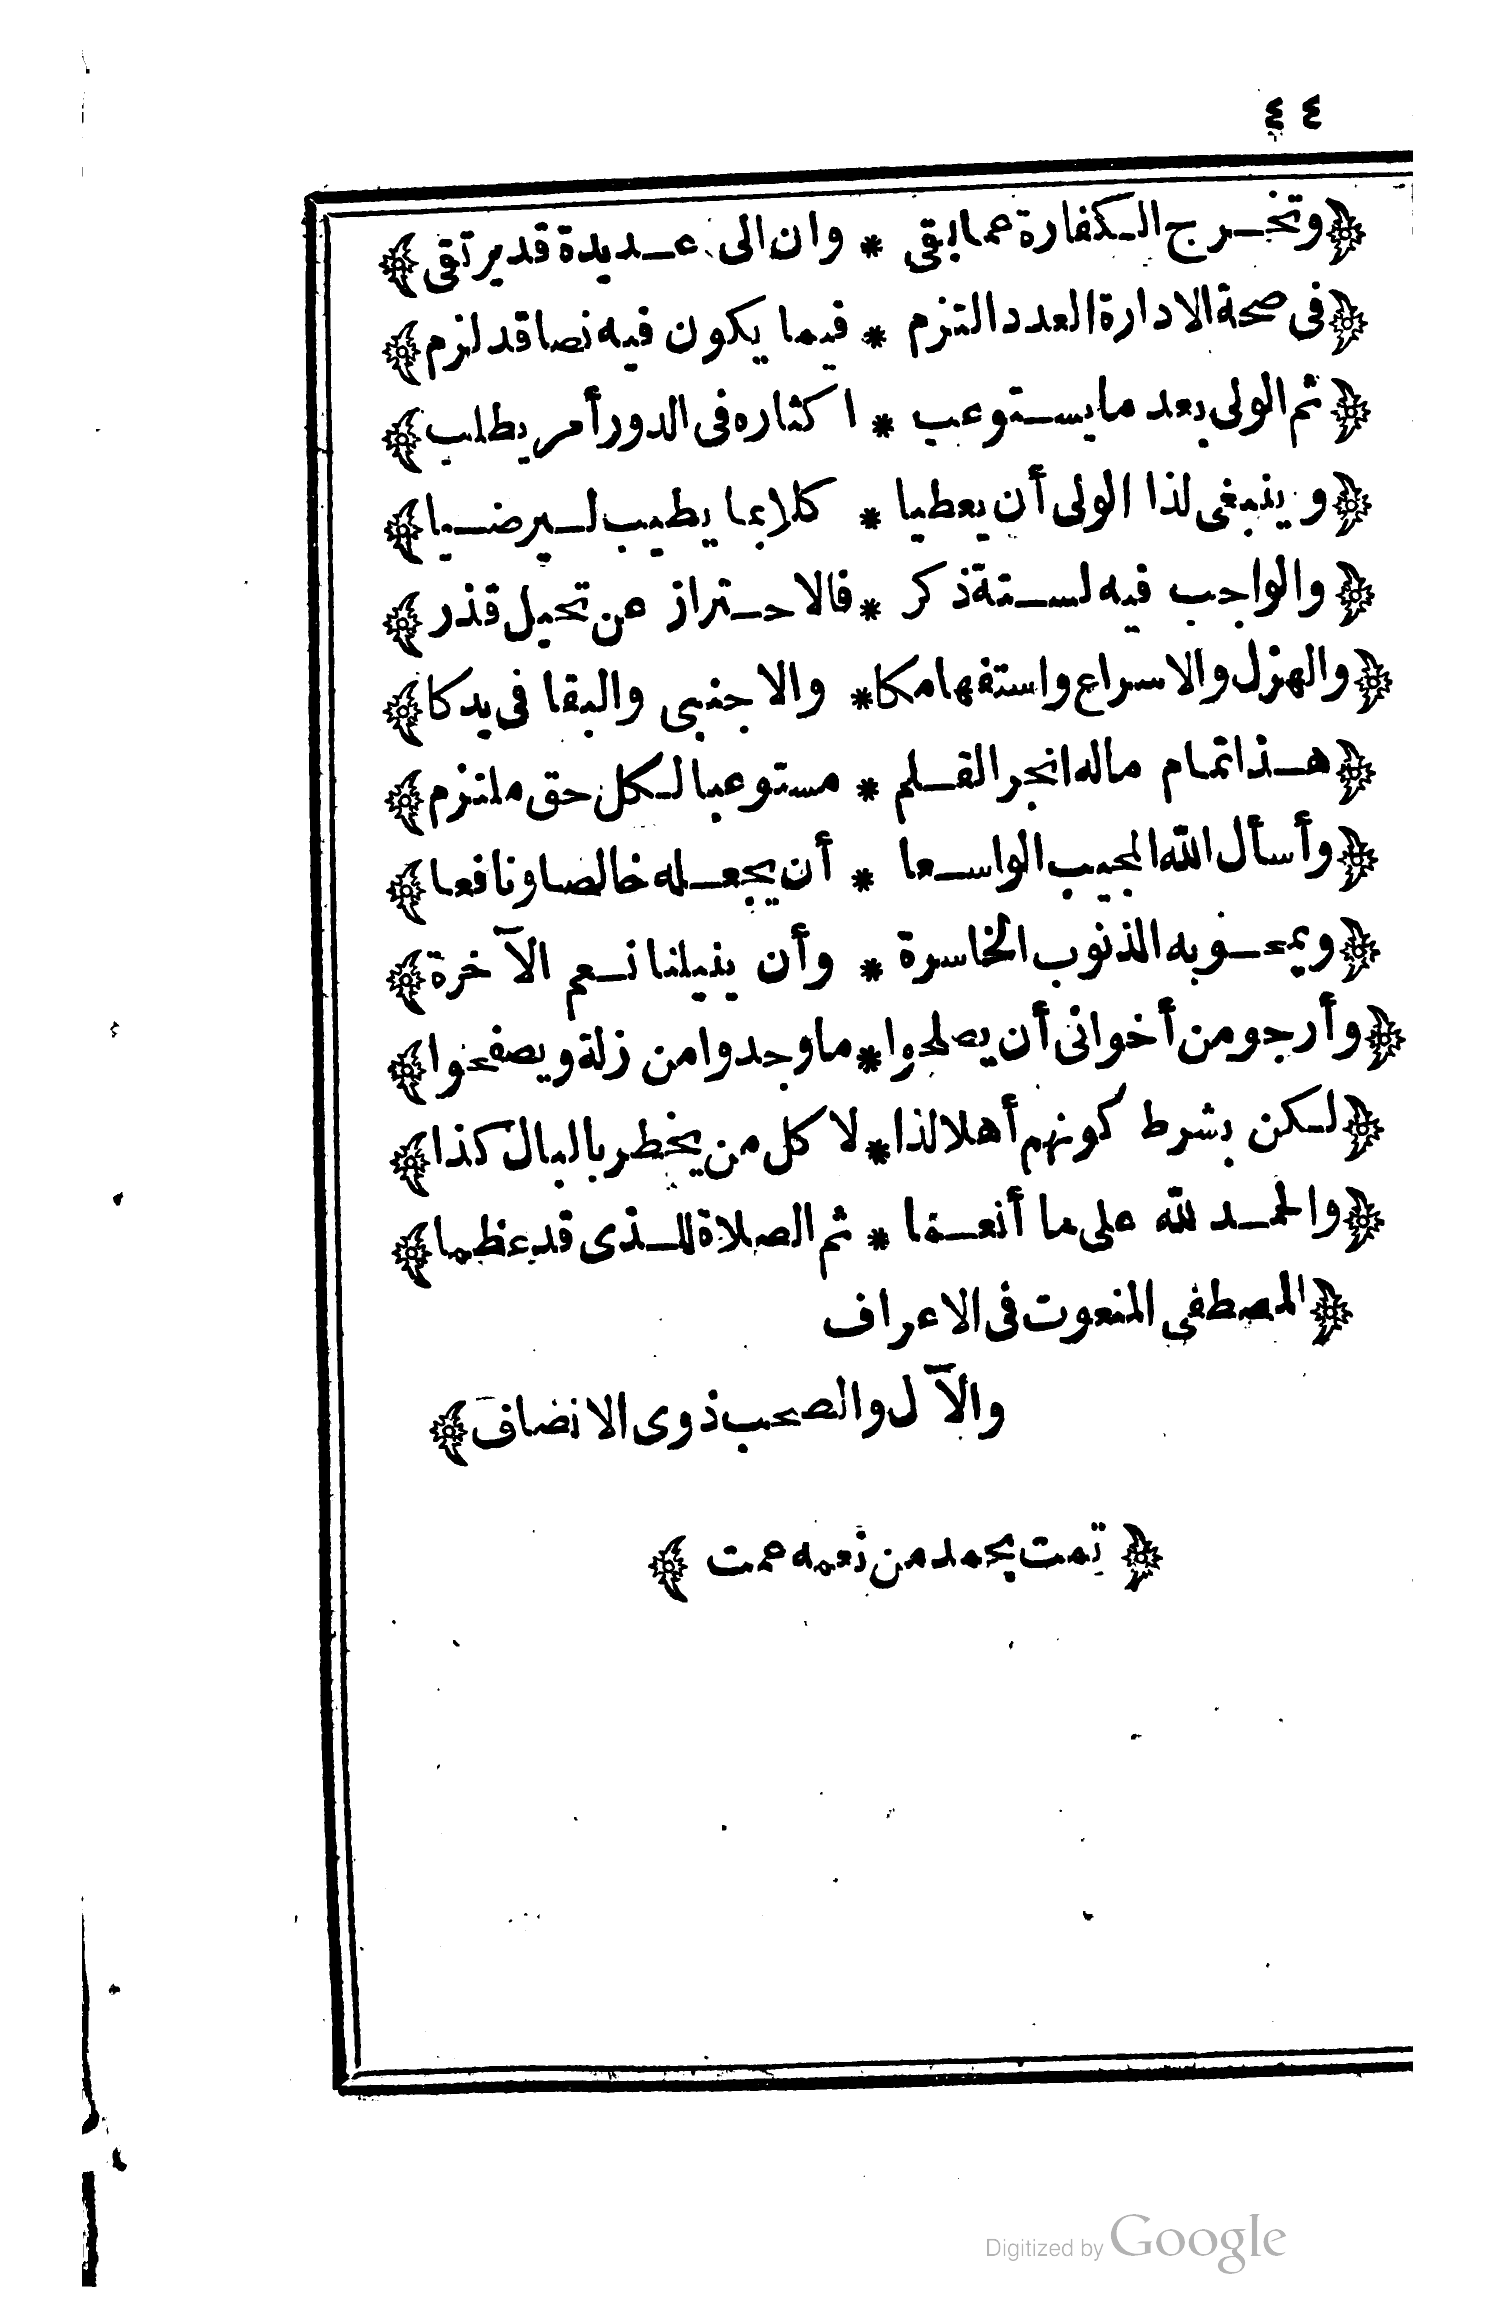 ٤٤
﴿وتخرج الكفارة عما بقى * وان الى عديدة قد يرتقى﴾
﴿فى صحة الادارة العدد التزم * فيما يكون فيه نصا قد لزم﴾
﴿ثم الولى بعد ما يستوعب * اكثاره فى الدور أمر يطلب﴾
﴿وينبغى لذا الولى أن يعطيا * كلا بما يطيب ليرضيا﴾
﴿والواجب فيه لستة ذكر * فالاحتراز عن تحيل قذر﴾
﴿والهزل والاسراع واستفهامكا * والاجنبى والبقا فى يدكا﴾
﴿هذا تمام ماله انجر القلم * مستوعبا لكل حق ملتزم﴾
﴿وأسأل الله المجيب الواسعا * أن يجعله خالصا ونافعا﴾
﴿ويمحو به الذنوب الخاسرة * وأن ينيلنا نعم الآخرة﴾
﴿وأرجو من أخوانى أن يصلحوا * ما وجدوا من زلة ويصفحوا﴾
﴿لكن بشرط كونهم أهلا لذا * لا كل من يخطر بالبال كذا﴾
﴿والحمد لله على ما أنعما * ثم الصلاة للذى قد عظما﴾
﴿المصطفى المنعوت فى الاعراف
والآل والصحب ذوى الانصاف﴾
﴿تمت بحمد من نعمه عمت﴾
Digitized by Google